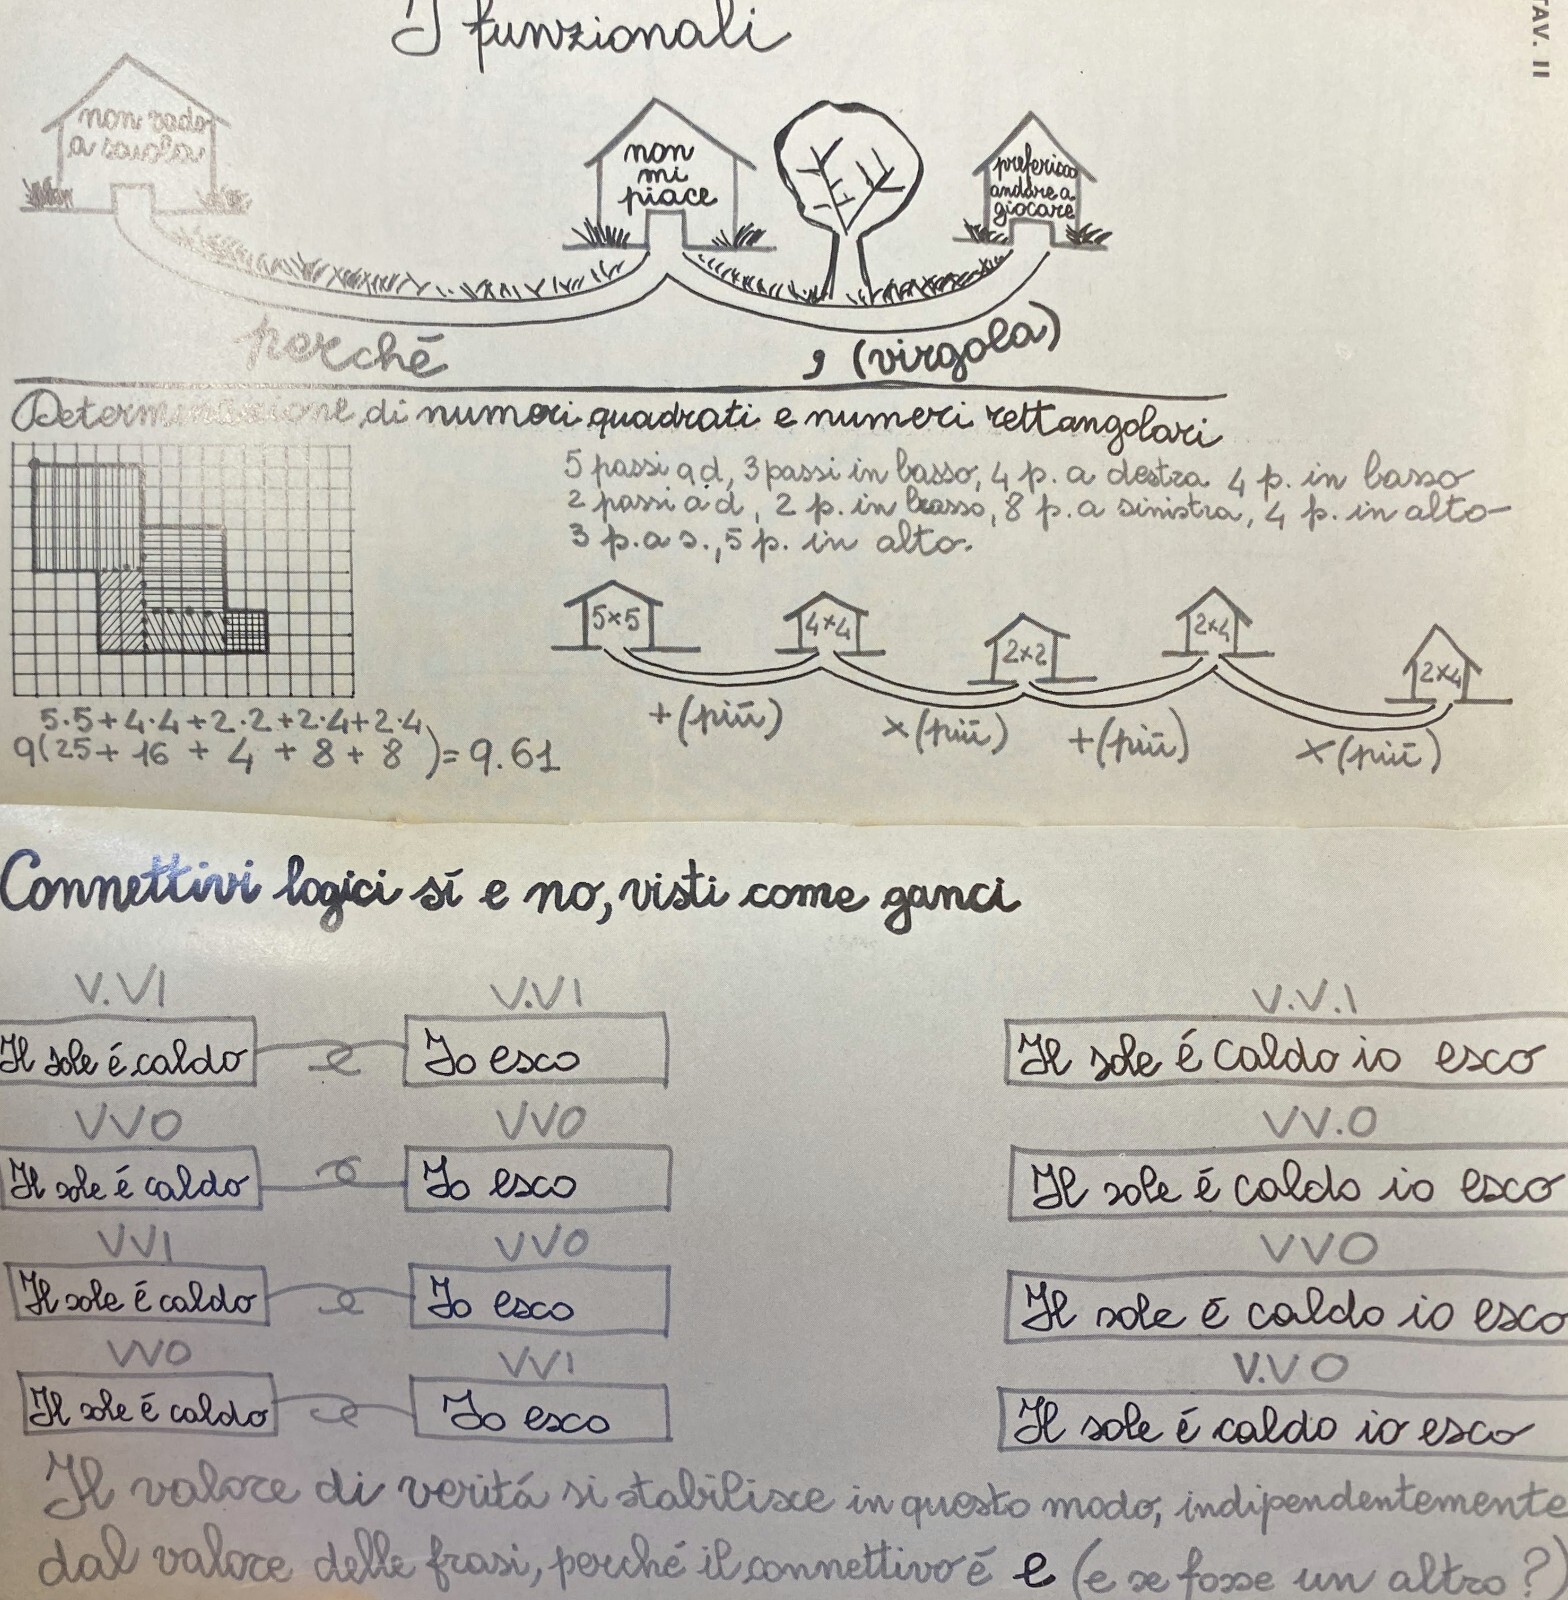 TAV. II
I funzionali
non vado
a scuola
non
mi
piace
preferisco
andare a
giocare
perché
, (virgola)
Determinazione di numeri quadrati e numeri rettangolari
5 passi a d, 3 passi in basso, 4 p. a destra 4 p. in basso
2 passi a d, 2 p. in basso, 8 p. a sinistra, 4 p. in alto
3 p. a s., 5 p. in alto.
5×5
4×4
2×2
2×4
2×4
+ (più)
× (più)
+ (più)
× (più)
5·5+4·4+2·2+2·4+2·4
9(25+ 16 + 4 + 8 + 8 )= 9.61
Connettivi logici sí e no, visti come ganci
V.VI V.VI V.V.I
Il sole é caldo e Io esco Il sole é caldo io esco
VVO VVO VV.O
Il sole é caldo e Io esco Il sole é caldo io esco
VVI VVO VVO
Il sole é caldo e Io esco Il sole é caldo io esco
VVO VVI V.VO
Il sole é caldo e Io esco Il sole é caldo io esco
Il valore di veritá si stabilisce in questo modo, indipendentemente
dal valore delle frasi, perché il connettivo é e (e se fosse un altro?)